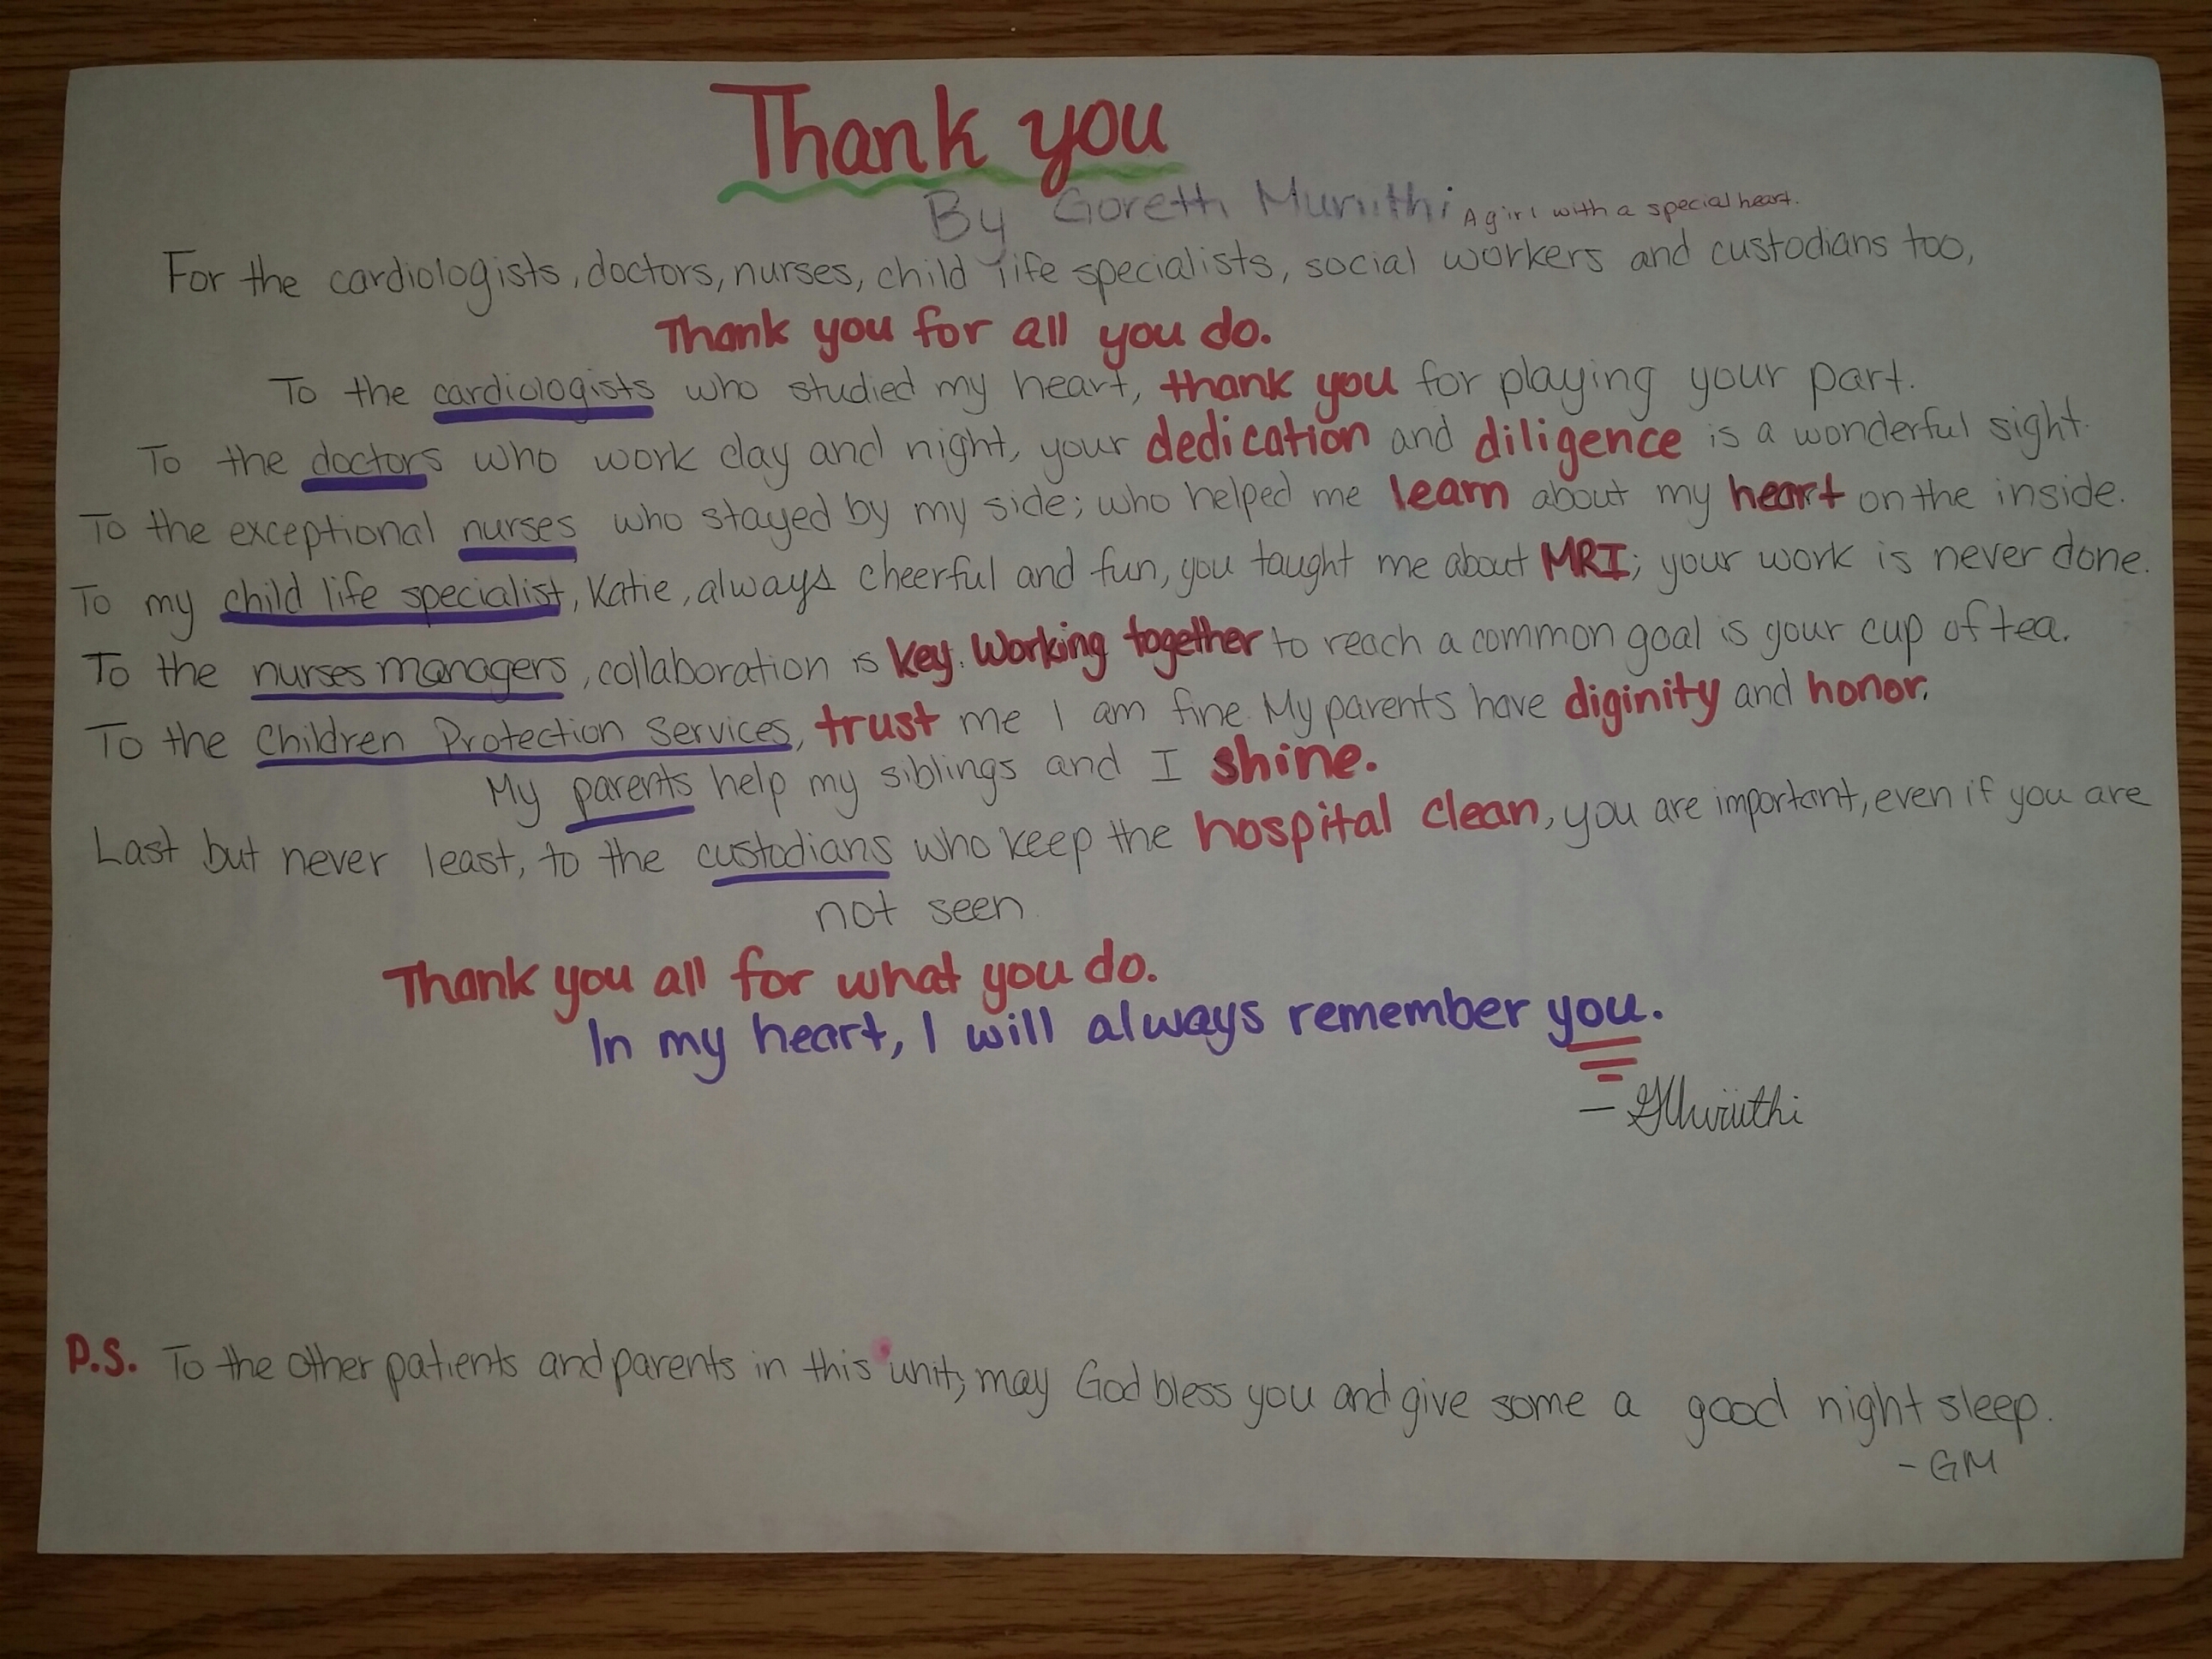 Thank you
By Goretti Muriithi A girl with a special heart.
For the cardiologists, doctors, nurses, child life specialists, social workers and custodians too,
Thank you for all you do.
To the cardiologists who studied my heart, thank you for playing your part.
To the doctors who work day and night, your dedication and diligence is a wonderful sight.
To the exceptional nurses who stayed by my side; who helped me learn about my heart on the inside.
To my child life specialist, Katie, always cheerful and fun, you taught me about MRI; your work is never done.
To the nurses managers, collaboration is key. Working together to reach a common goal is your cup of tea.
To the Children Protection Services, trust me I am fine. My parents have diginity and honor.
My parents help my siblings and I shine.
Last but never least, to the custodians who keep the hospital clean, you are important, even if you are
not seen
Thank you all for what you do.
In my heart, I will always remember you.
— GMuriithi
P.S. To the other patients and parents in this unit, may God bless you and give some a good night sleep.
- GM